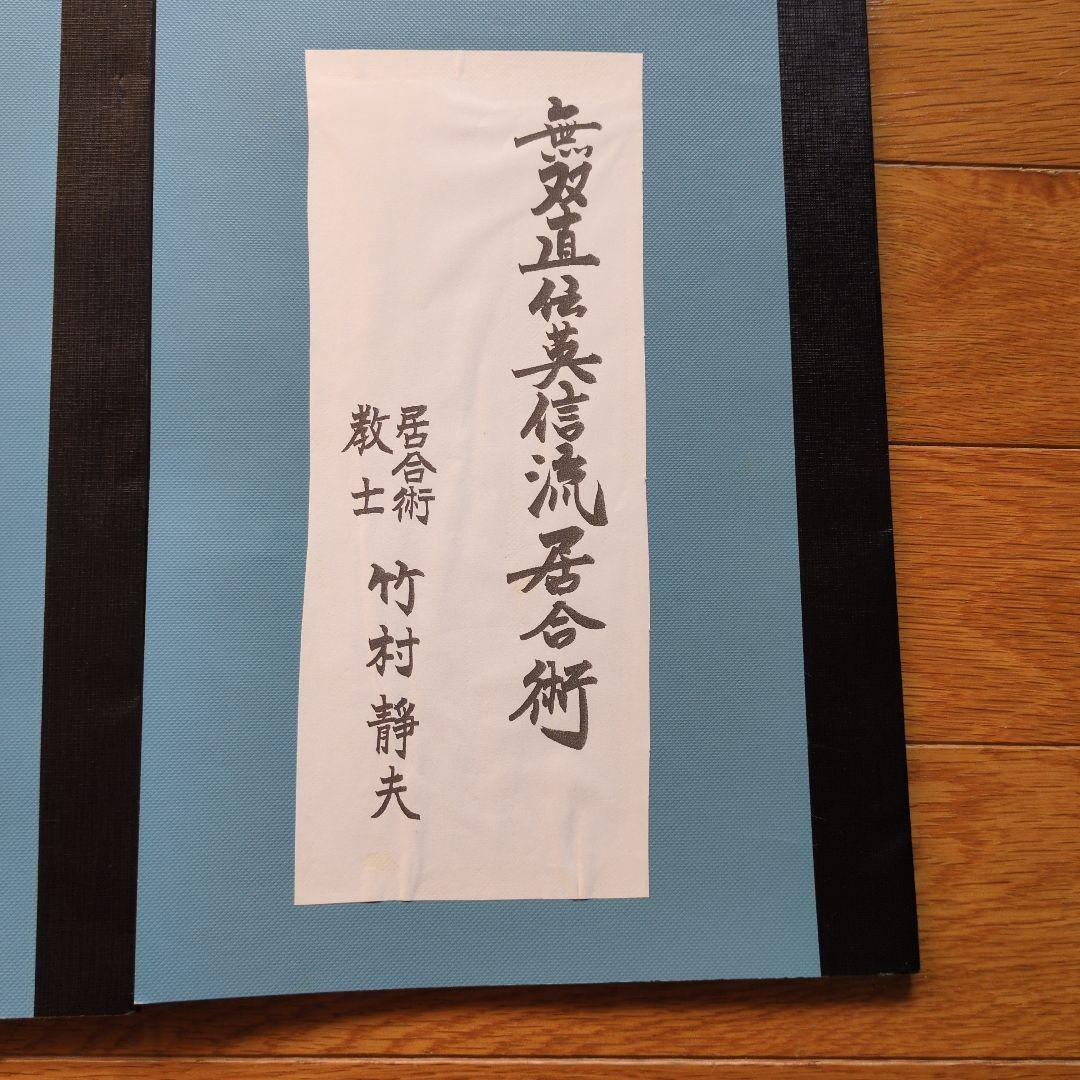 無双直伝英信流居合術
居合術
教士
竹村靜夫